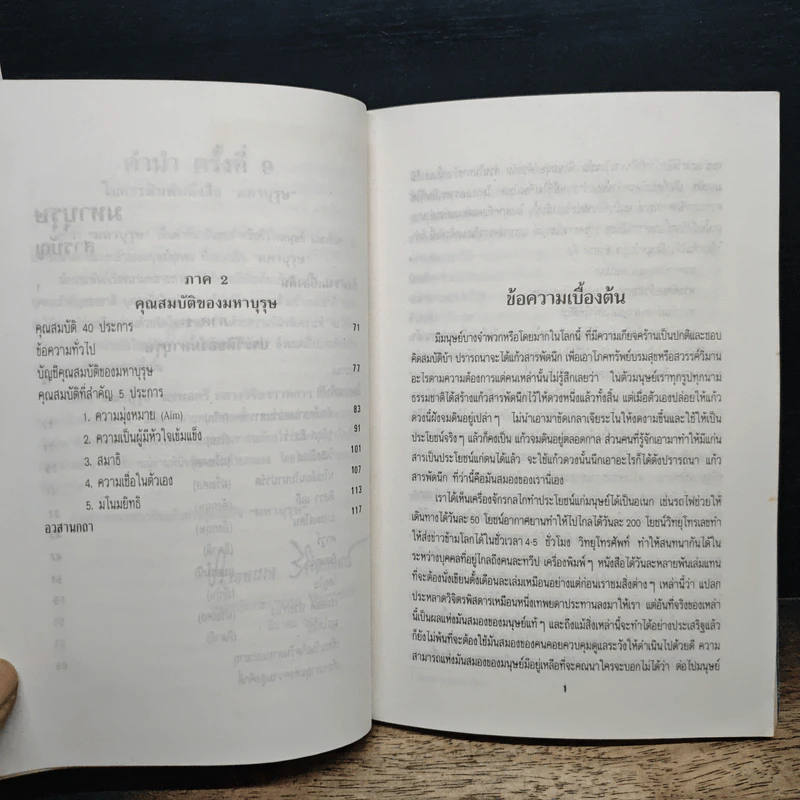 ภาค 2
คุณสมบัติของมหาบุรุษ
คุณสมบัติ 40 ประการ 71
ข้อความทั่วไป
บัญชีคุณสมบัติของมหาบุรุษ 77
คุณสมบัติที่สำคัญ 5 ประการ
1. ความมุ่งหมาย (Aim) 83
2. ความเป็นผู้มีหัวใจเข้มแข็ง 91
3. สมาธิ 101
4. ความเชื่อในตัวเอง 107
5. มโนมยิทธิ 113
อวสานกถา 117
ข้อความเบื้องต้น
มีมนุษย์บางจำพวกหรือโดยมากในโลกนี้ ที่มีความเกียจคร้านเป็นปกติและชอบ
คิดสมบัติบ้า ปรารถนาจะได้แก้วสารพัดนึก เพื่อเอาโภคทรัพย์บรมสุขหรือสวรรค์วิมาน
อะไรตามความต้องการแต่คนเหล่านั้นไม่รู้สึกเลยว่า ในตัวมนุษย์เราทุกรูปทุกนาม
ธรรมชาติได้สร้างแก้วสารพัดนึกไว้ให้ดวงหนึ่งแล้วทั้งสิ้น แต่เมื่อตัวเองปล่อยให้แก้ว
ดวงนี้ฝังจมดินอยู่เปล่าๆ ไม่นำเอามาขัดเกลาเจียระไนให้งดงามขึ้นและใช้ให้เป็น
ประโยชน์จริงๆ แล้วก็คงเป็น แก้วจมดินอยู่ตลอดกาล ส่วนคนที่รู้จักเอามาทำให้มีแก่น
สารเป็นประโยชน์แก่ตนได้แล้ว จะใช้แก้วดวงนั้นนึกเอาอะไรก็ได้ดังปรารถนา แก้ว
สารพัดนึก ที่ว่านี้คือมันสมองของเรานี่เอง
เราได้เห็นเครื่องจักรกลไกทำประโยชน์แก่มนุษย์ได้เป็นอเนก เช่นรถไฟช่วยให้
เดินทางได้วันละ 50 โยชน์อากาศยานทำให้ไปไกลได้วันละ 200 โยชน์วิทยุโทรเลขทำ
ให้ส่งข่าวข้ามโลกได้ในชั่วเวลา 4-5 ชั่วโมง วิทยุโทรศัพท์ ทำให้สนทนากันได้ใน
ระหว่างบุคคลที่อยู่ไกลถึงคนละทวีป เครื่องพิมพ์ๆ หนังสือได้วันละหลายพันเล่มแทน
ที่จะต้องนั่งเขียนตั้งเดือนละเล่มเหมือนอย่างแต่ก่อนเราชมสิ่งต่างๆ เหล่านี้ว่า แปลก
ประหลาดวิจิตรพิสดารเหมือนหนึ่งเทพยดาประทานลงมาให้เรา แต่อันที่จริงของเหล่า
นี้เป็นผลแห่งมันสมองของมนุษย์แท้ๆ และถึงแม้สิ่งเหล่านี้จะทำได้อย่างประเสริฐแล้ว
ก็ยังไม่พ้นที่จะต้อง ใช้มันสมองของคนคอยควบคุมดูแลระวังให้ดำเนินไปด้วยดี ความ
สามารถแห่งมันสมองของมนุษย์มีอยู่เหลือที่จะคณนาใครจะบอกไม่ได้ว่า ต่อไปมนุษย์
1